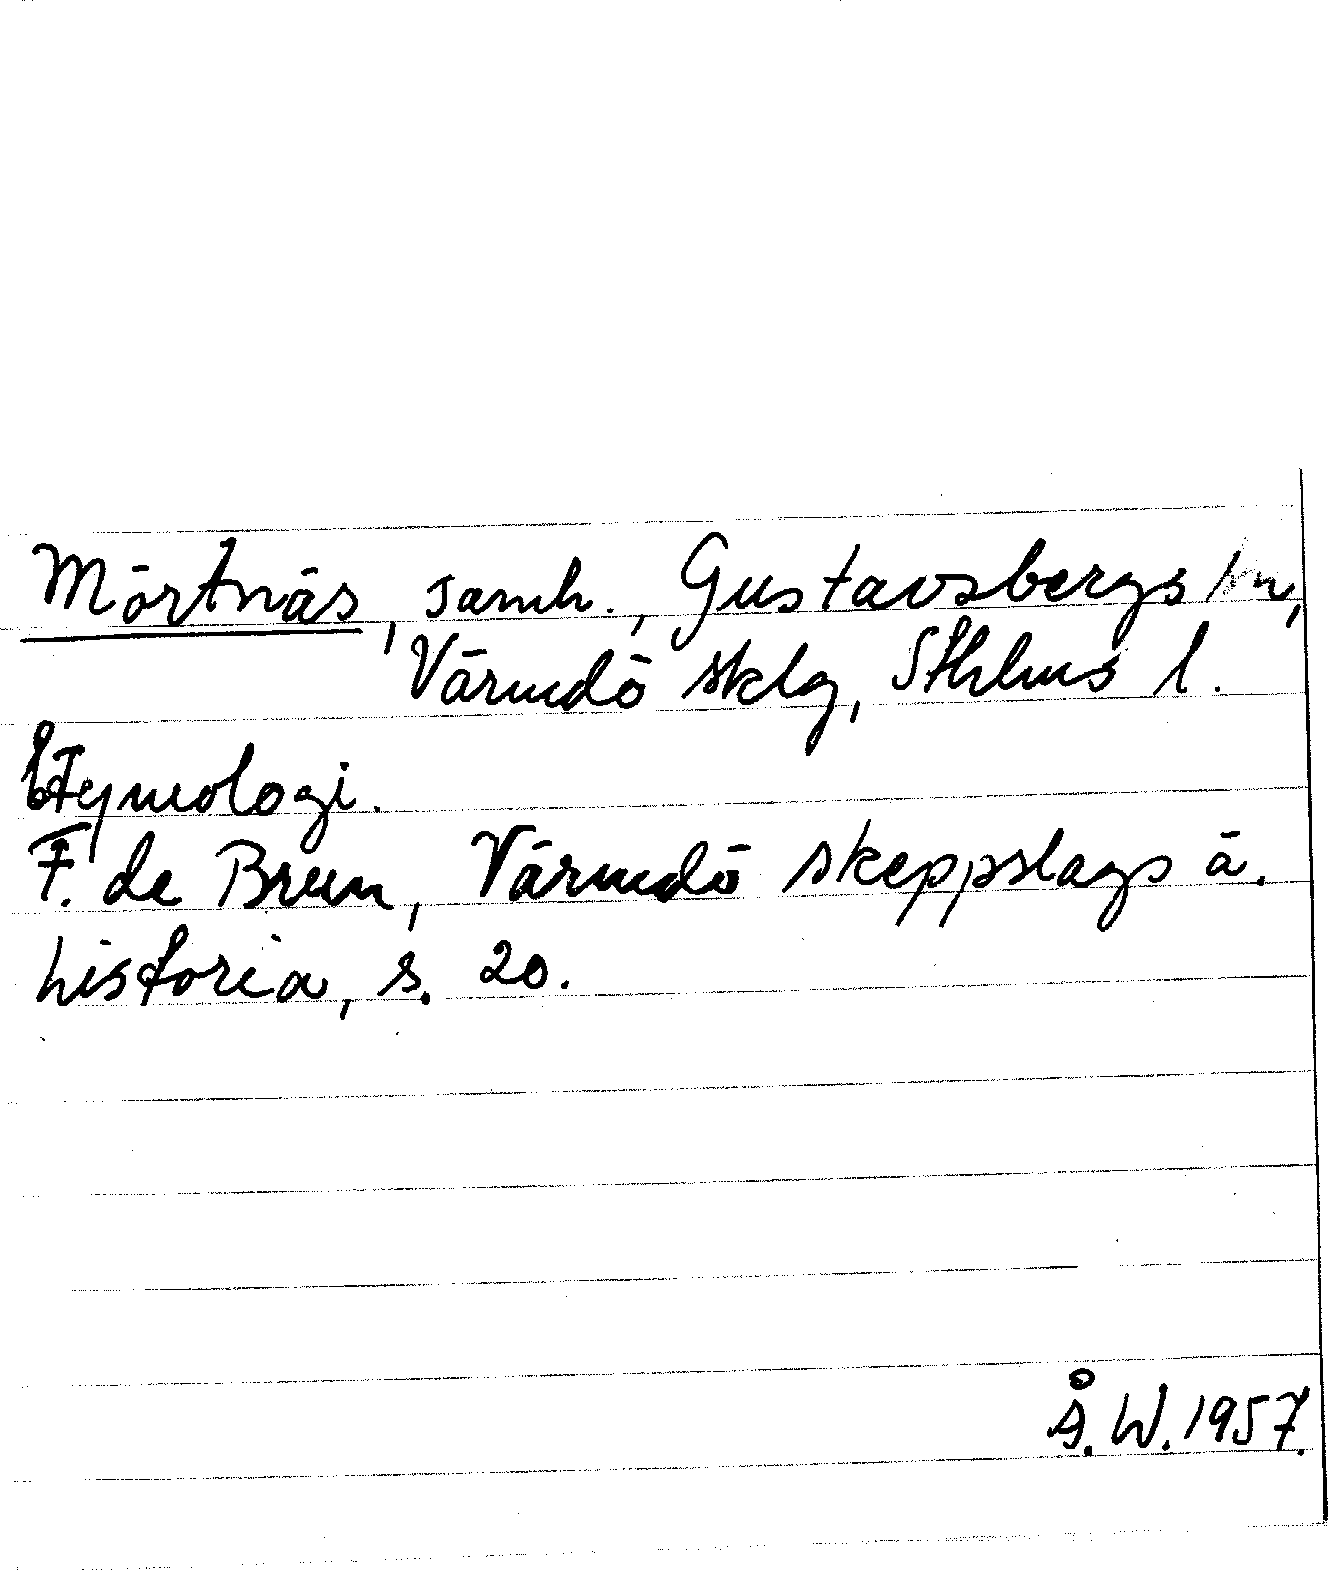 Mörtnäs, samh., Gustavsbergs sn,
Värmdö sklg, Sthlms l.
Etymologi.
F. de Brun, Värmdö skeppslags ä.
historia, s. 20.
Å.W. 1957.